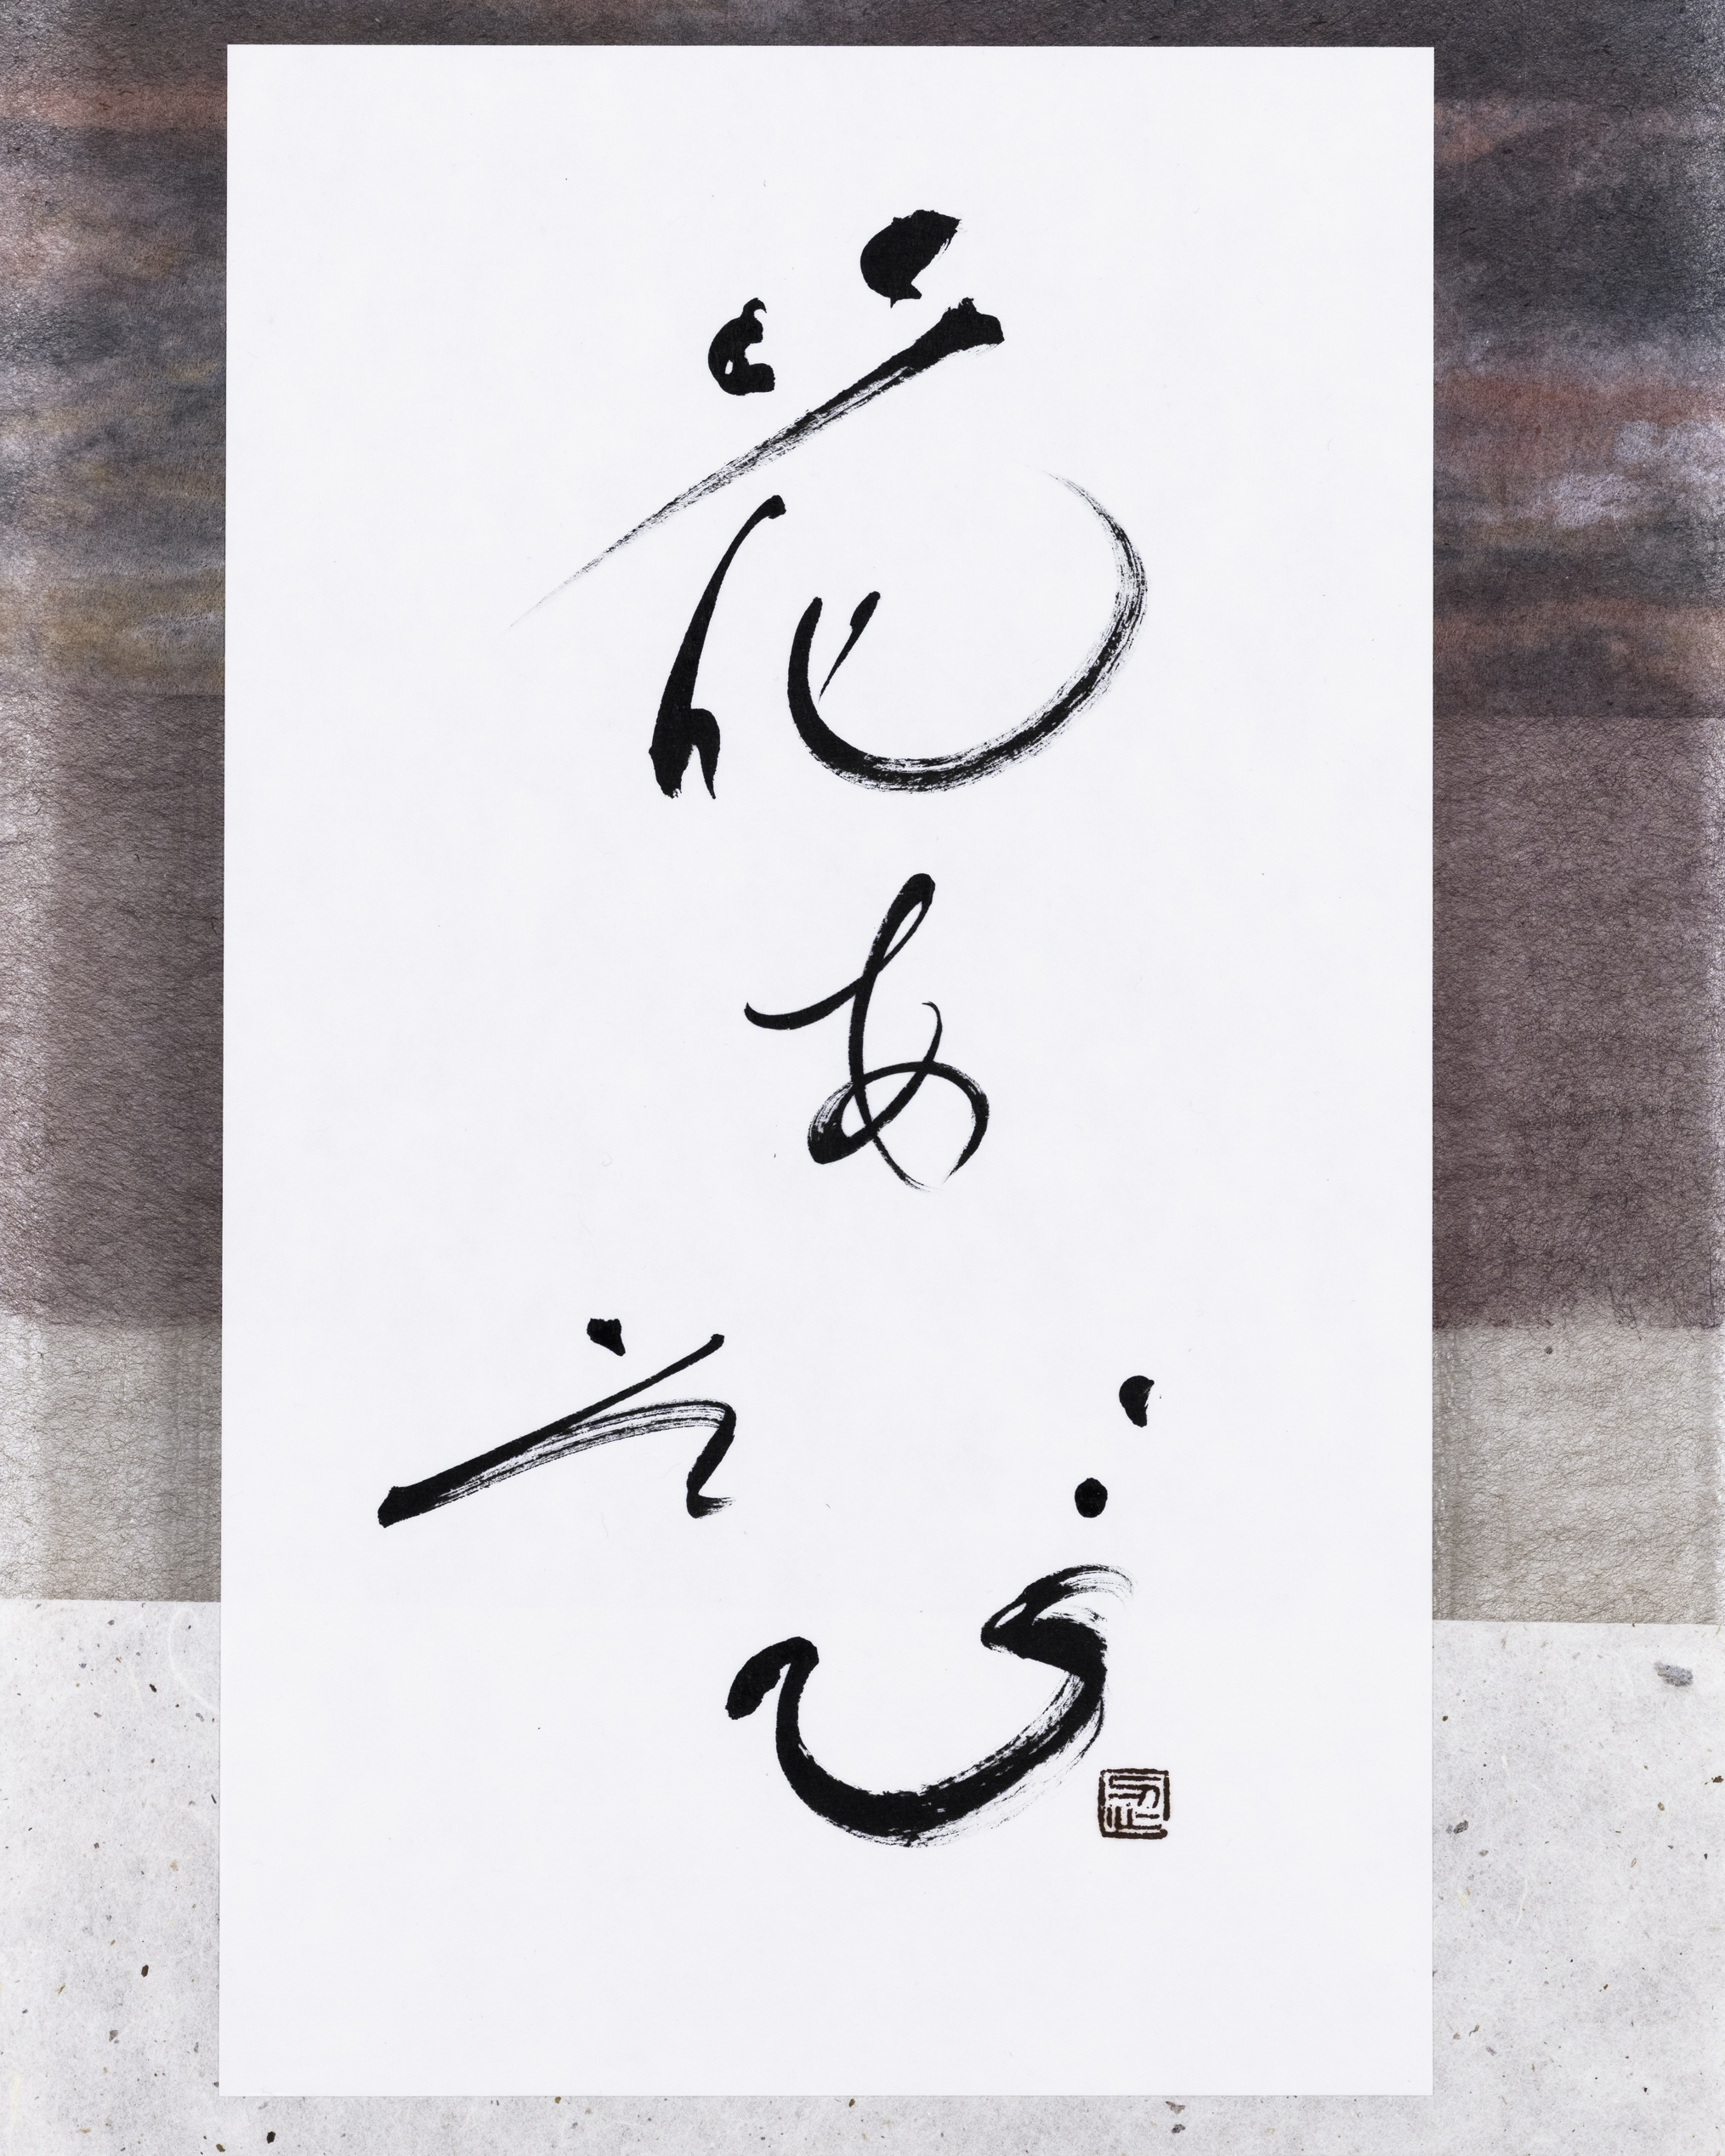 花あそび